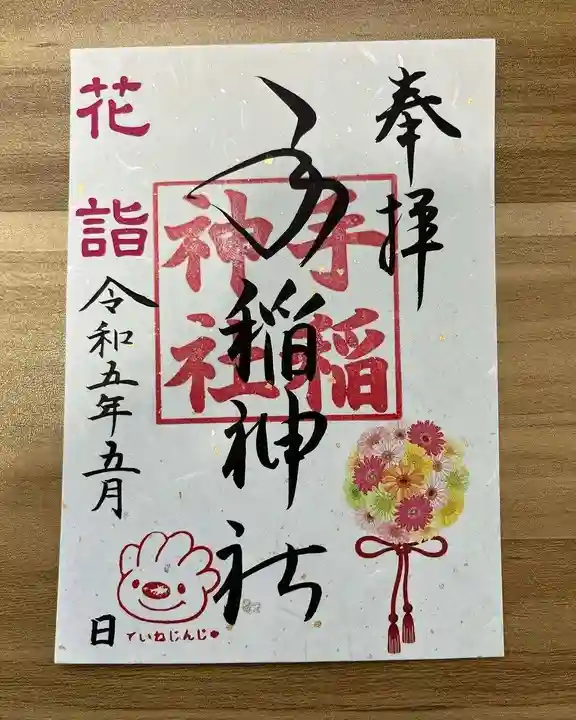 奉拝
手稲神社
手稲神社
花詣
令和五年五月
日
ていねじんじゃ